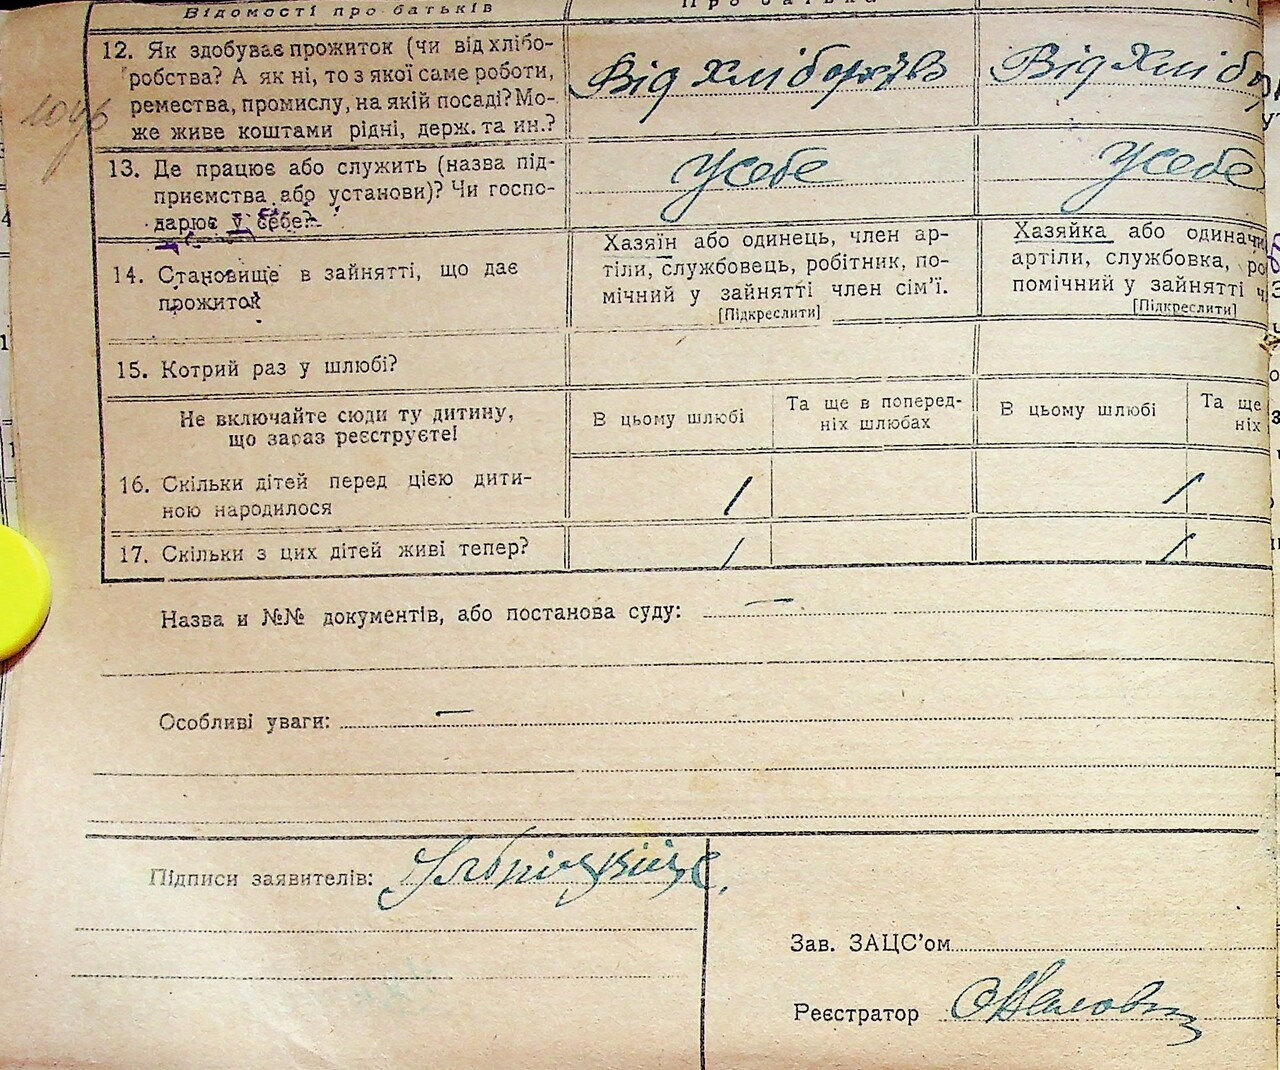 Відомості про батьків
Про батька
12. Як здобуває прожиток (чи від хлібо-
робства? А як ні, то з якої саме роботи,
ремества, промислу, на якій посаді? Мо-
же живе коштами рідні, держ. та ин.?
Від Хліборобів
Від Хлібор
13. Де працює або служить (назва під-
приємства або установи)? Чи госпо-
дарює у себе?
У себе
У себе
14. Становище в зайнятті, що дає
прожиток
Хазяїн або одинець, член ар-
тіли, службовець, робітник, по-
мічний у зайнятті член сім'ї.
[Підкреслити]
Хазяйка або одиначк
артіли, службовка, ро
помічний у зайнятті ч
[Підкреслити]
15. Котрий раз у шлюбі?
Не включайте сюди ту дитину,
що зараз реєструєте!
В цьому шлюбі
Та ще в поперед-
ніх шлюбах
В цьому шлюбі
Та ще
ніх
16. Скільки дітей перед цією дити-
ною народилося
1
1
17. Скільки з цих дітей живі тепер?
1
1
Назва и №№ документів, або постанова суду: —
Особливі уваги: —
Підписи заявителів:
Зав. ЗАЦС'ом
Реєстратор